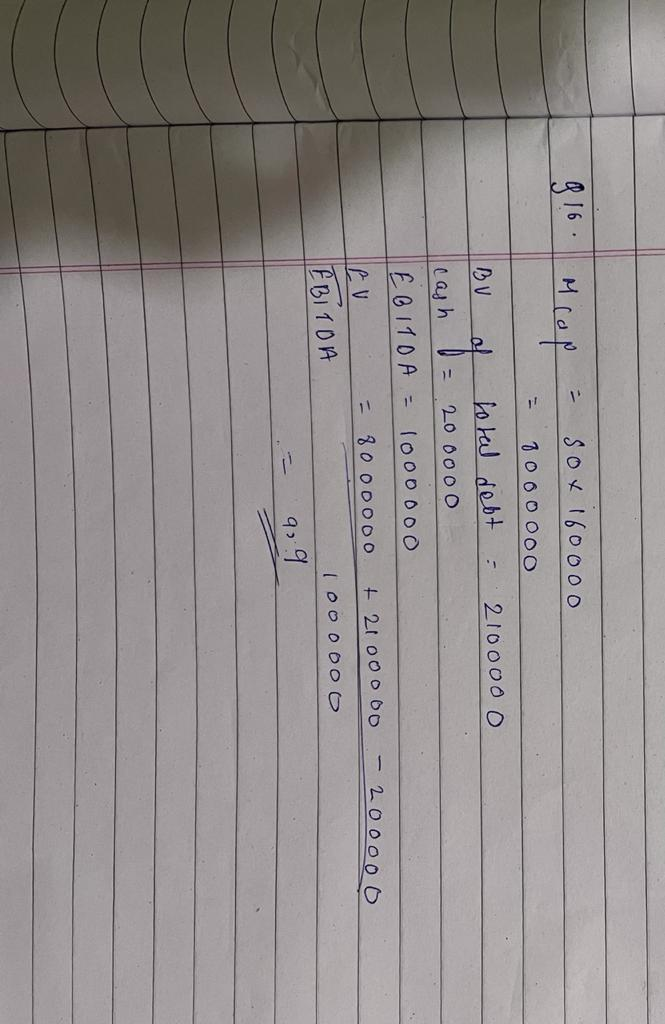 Q16. M Cap = 50 x 160000
= 8000000
BV of total debt = 2100000
Cash = 200000
EBITDA = 1000000
EV = 8000000 + 2100000 - 200000
EBITDA 1000000
= 9.9